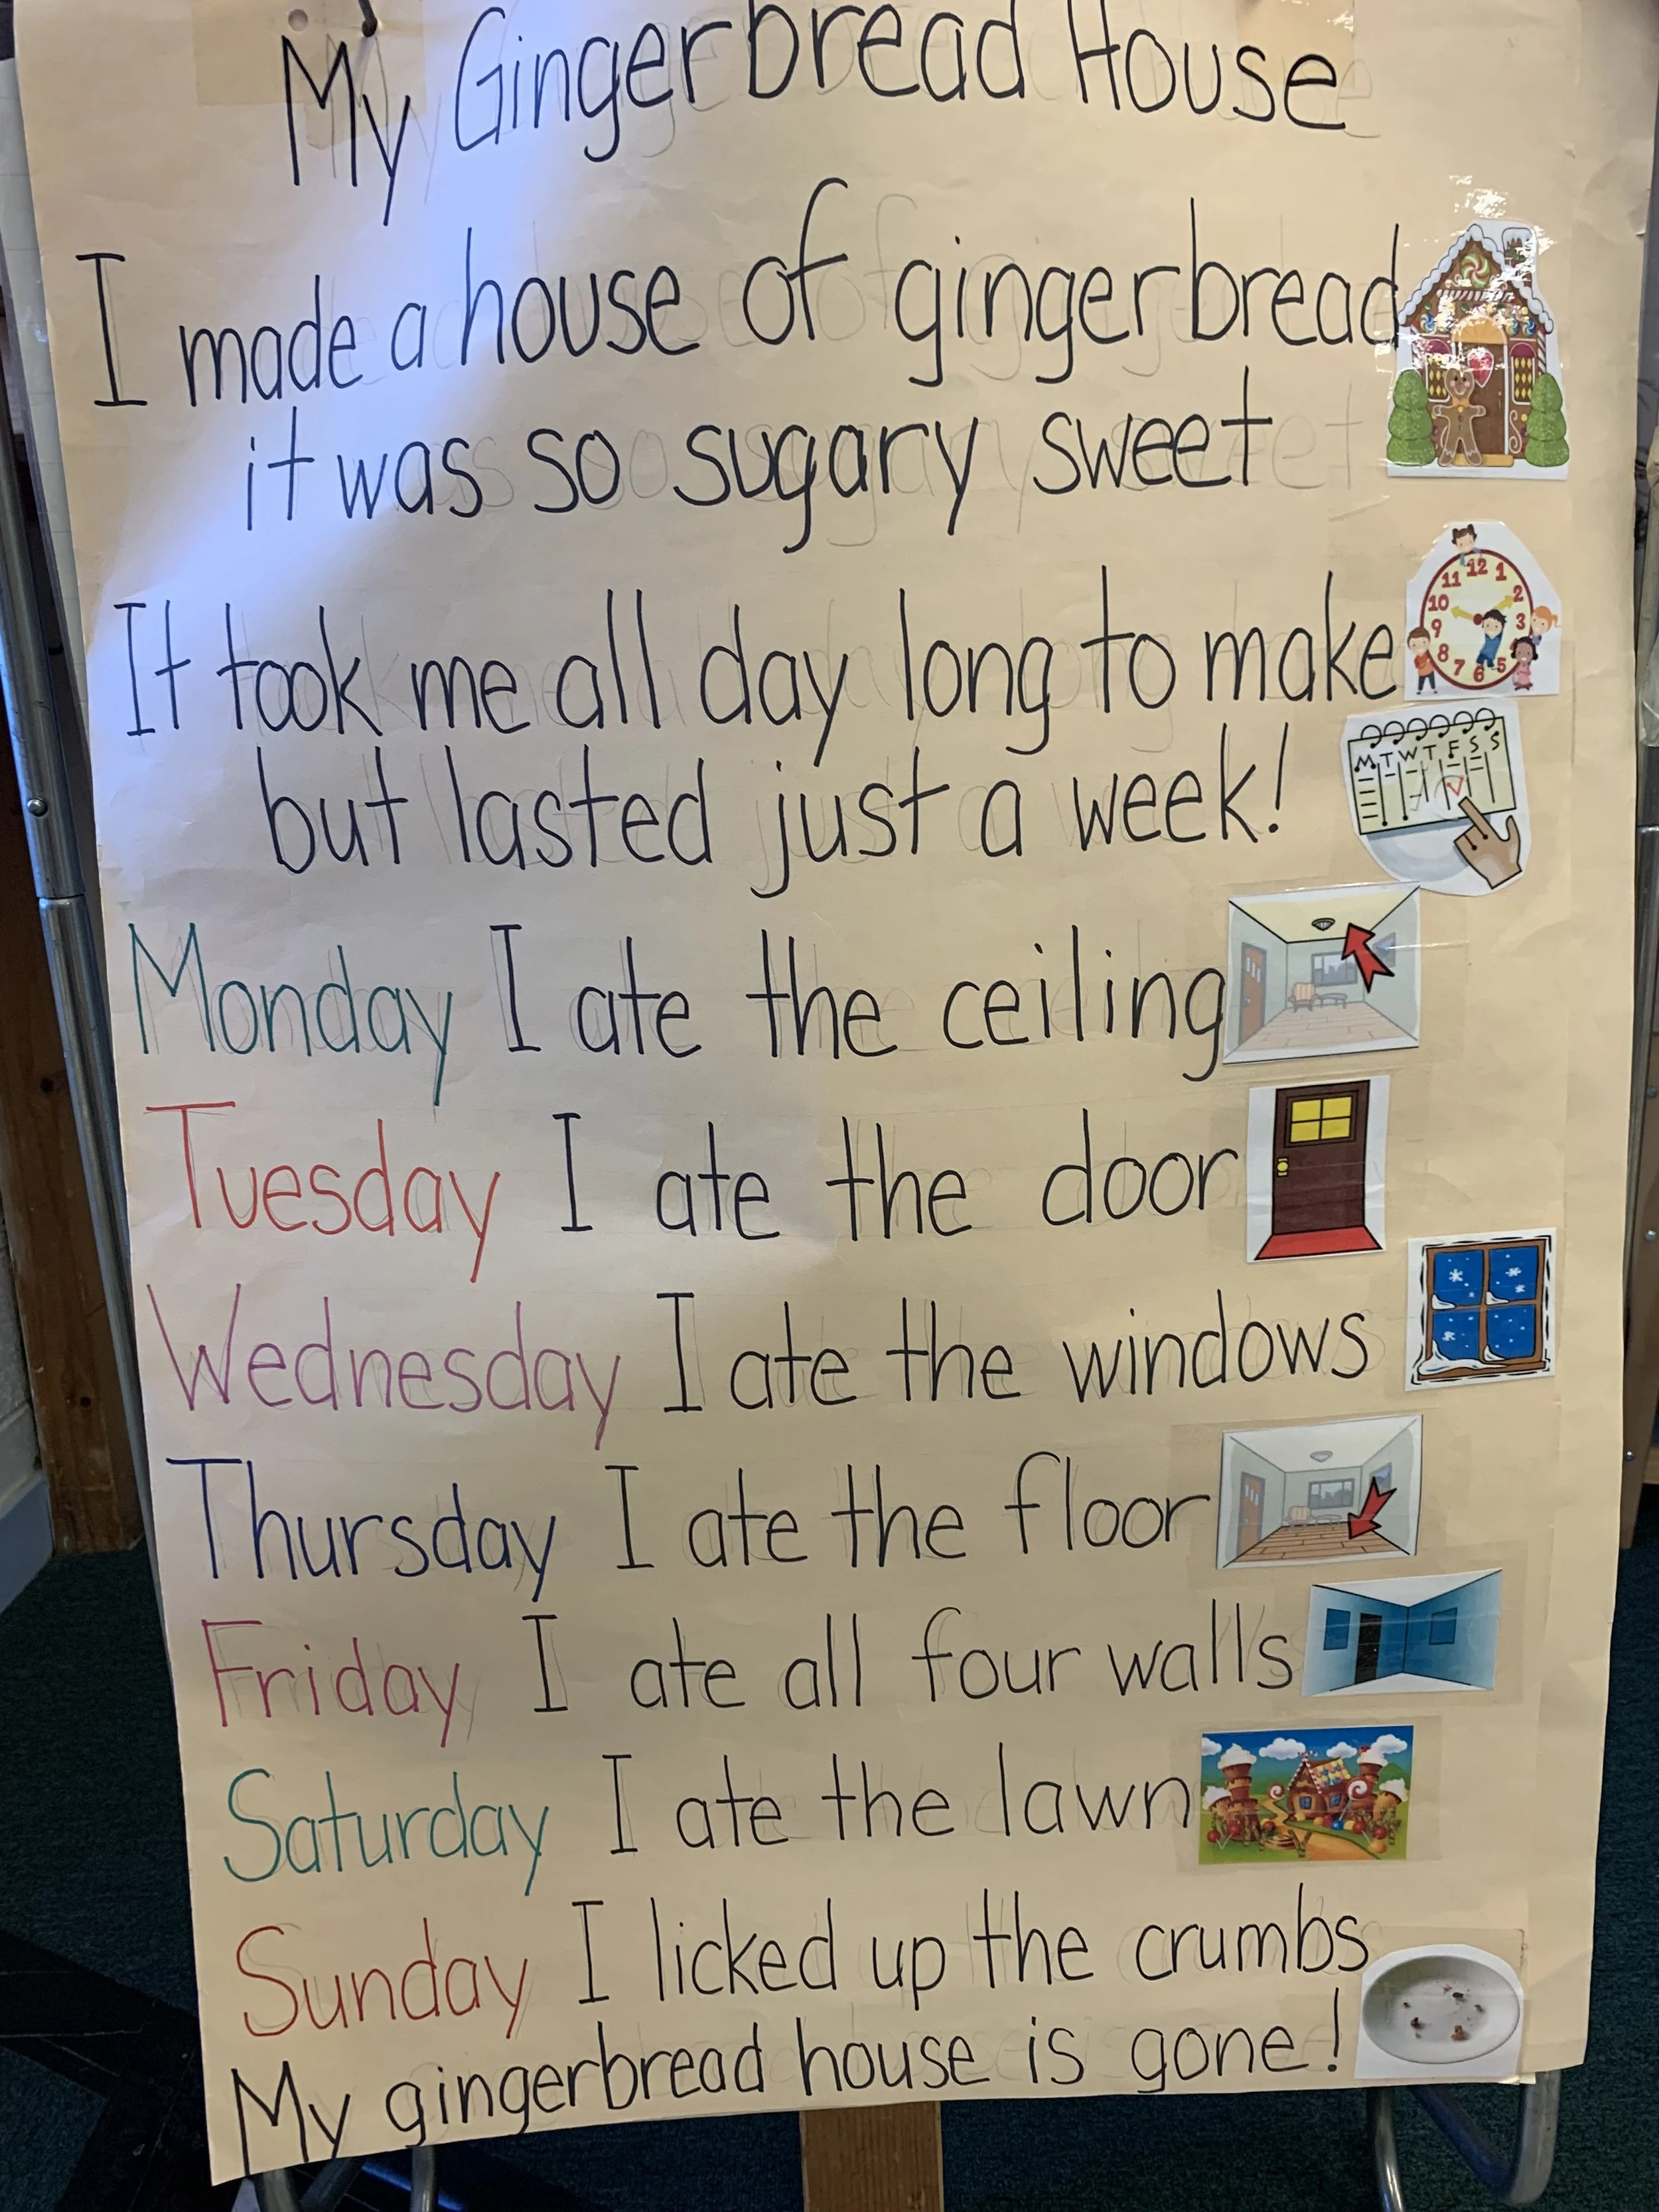 My Gingerbread House
I made a house of gingerbread
it was so sugary sweet
It took me all day long to make
12 1 2 3 5 6 7 8 9 10 11
but lasted just a week!
M T W T F S S
Monday I ate the ceiling
Tuesday I ate the door
Wednesday I ate the windows
Thursday I ate the floor
Friday I ate all four walls
Saturday I ate the lawn
Sunday I licked up the crumbs
My gingerbread house is gone!